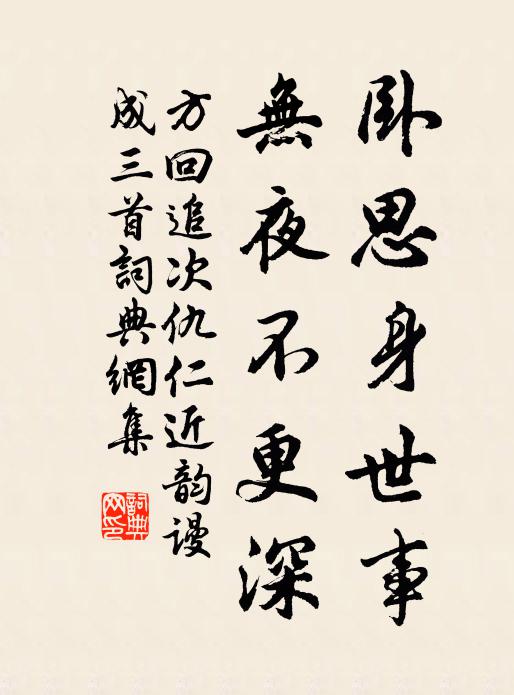 卧思身世事
無夜不更深
方回追次仇仁近韵谩
成三首詞典網集
詞典網印